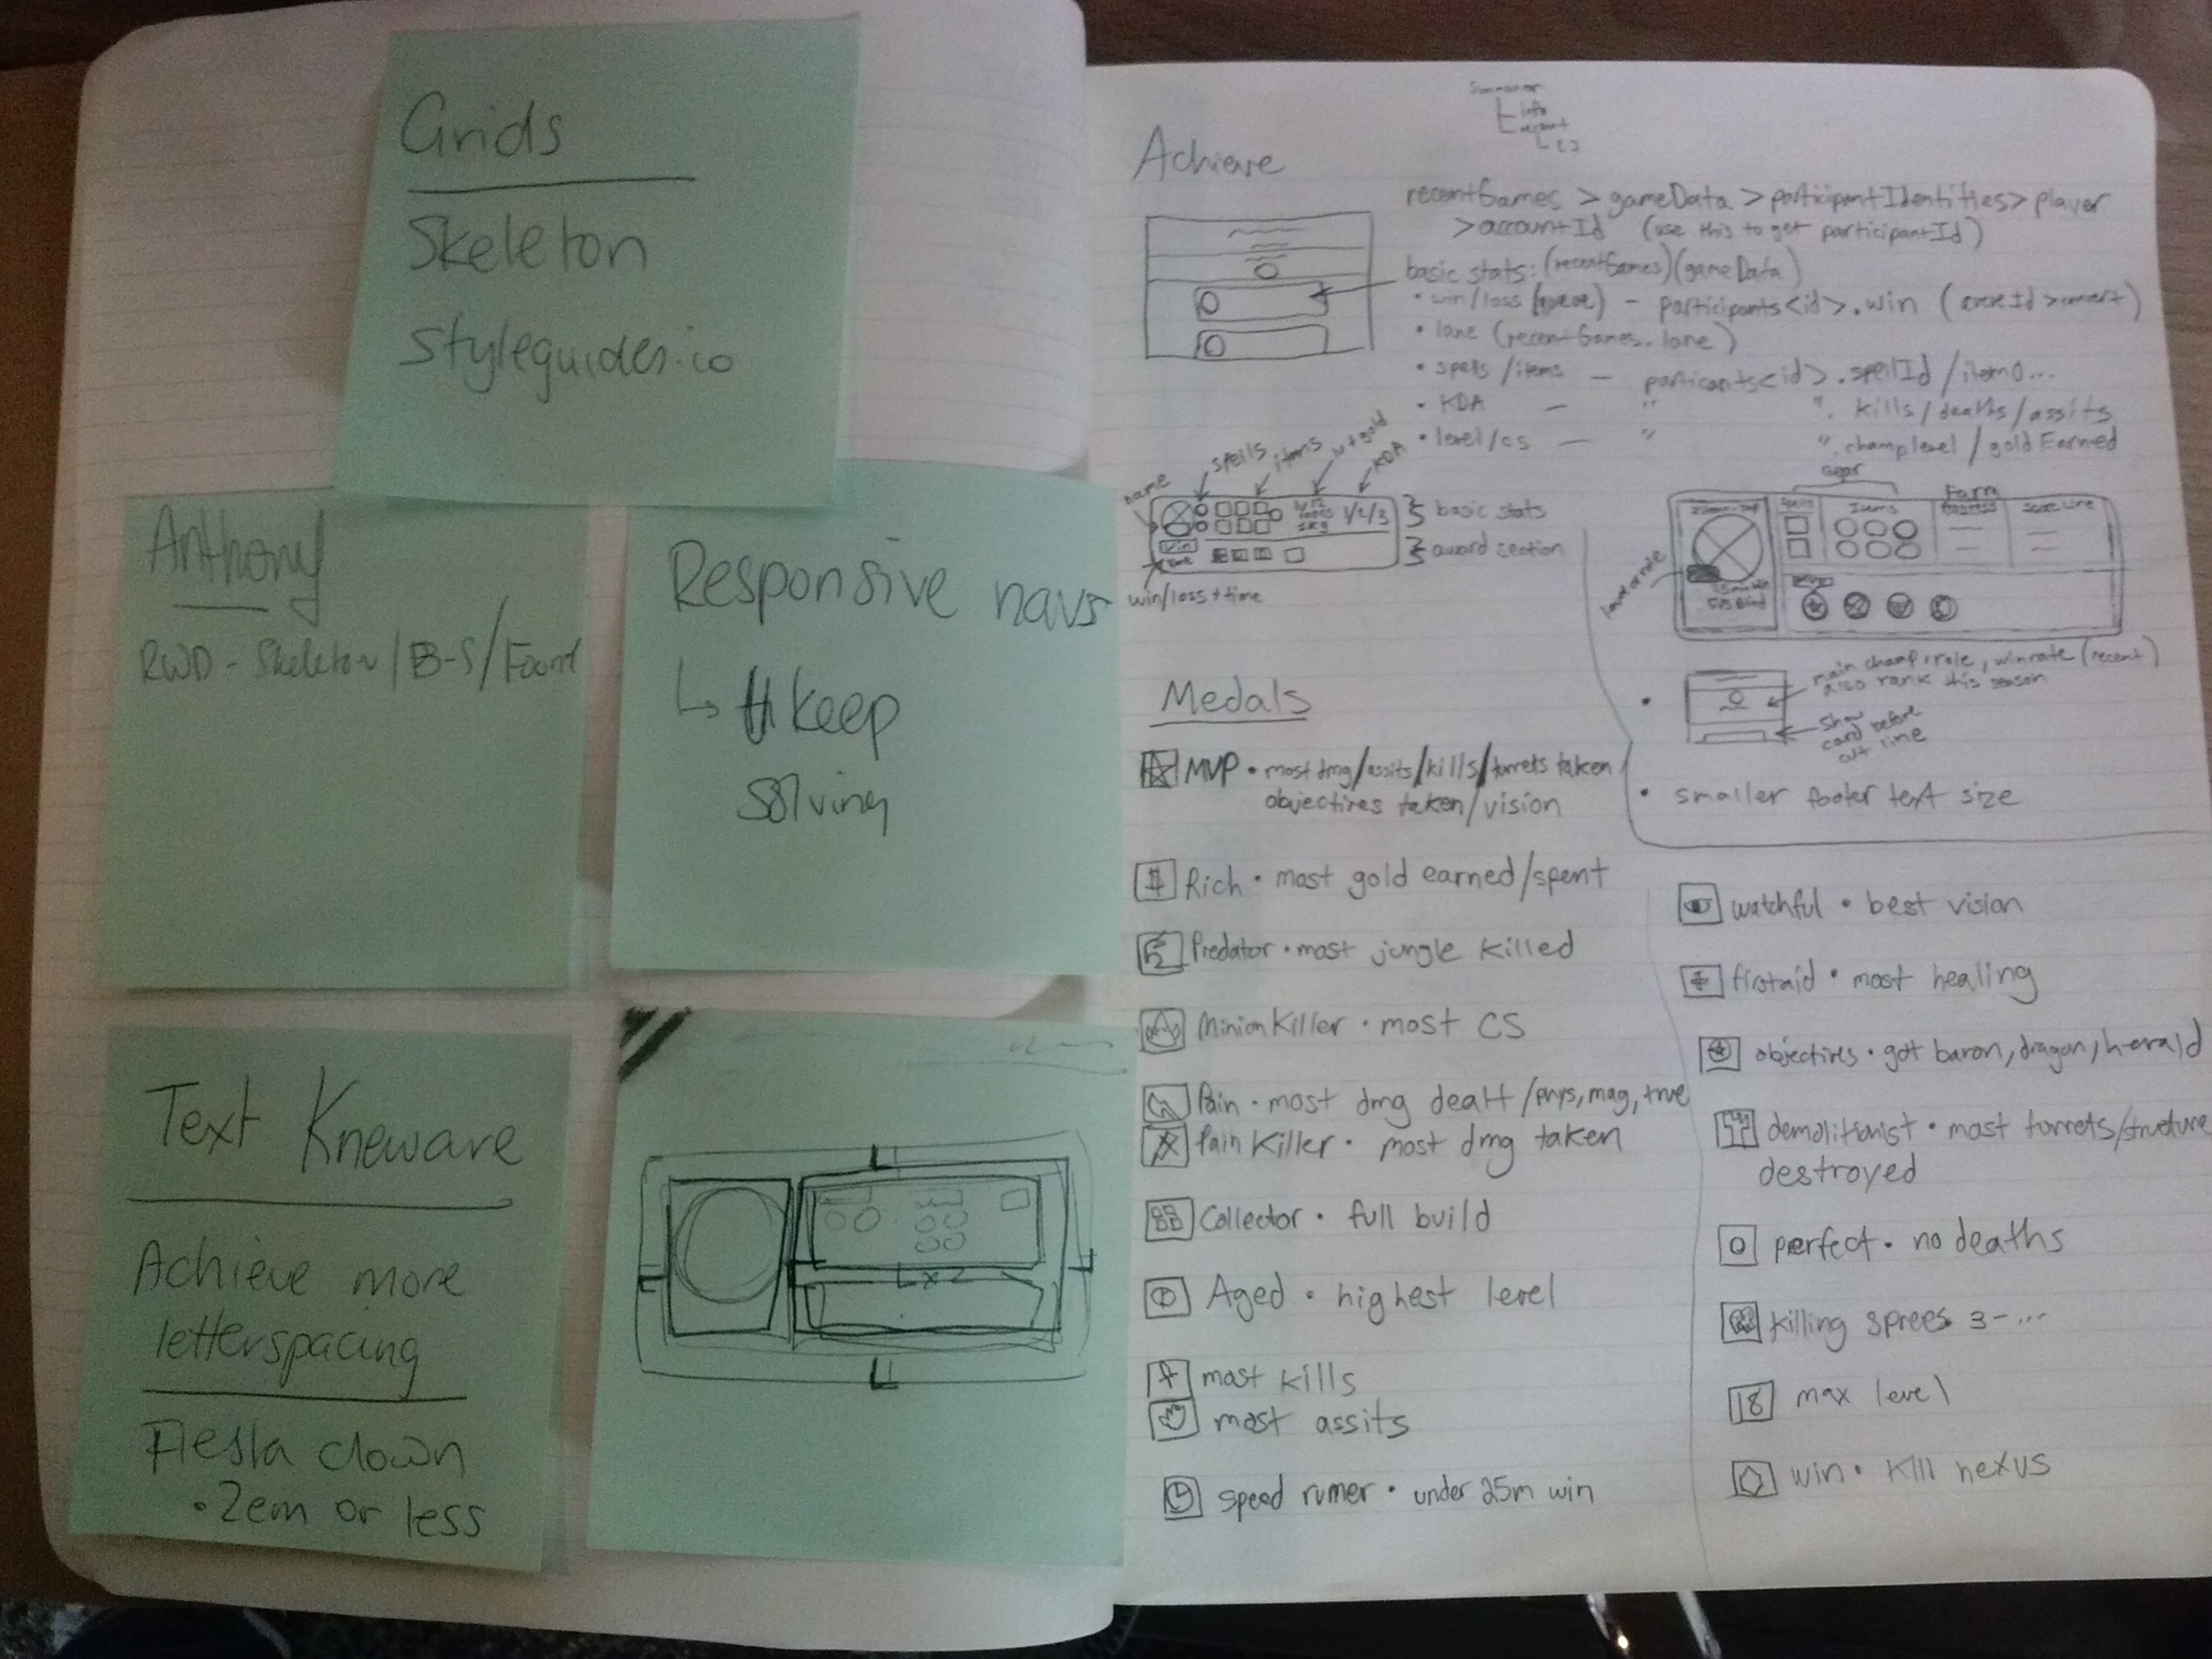 Grids
Skeleton
styleguides.io
Anthony
RWD - Skeleton / B-S / Found
Responsive navs
keep
solving
Text Kneware
Achieve more
letterspacing
Fiesta clown
• 2em or less
L x 2
Summoner
info
recent
[ ]
Achieve
recentGames > gameData > participantIdentities > player
> accountId (use this to get participantId)
basic stats: (recentGames)(gameData)
• win/loss (queue) - participants<id>.win (queueId > convert)
• lane (recentGames.lane)
• spells/items - particants<id>.spellId/item0...
• KDA - " ". kills/deaths/assits
• level/cs - " ". champlevel/goldEarned
name
spells
items
lv + gold
KDA
1/2/3
basic stats
award section
win
time
win/loss + time
Gear
Spells
Items
Farm
Score Line
lane or role
main champ, role, winrate (recent)
also rank this season
Show
card before
cut line
• smaller footer text size
Medals
MVP • most dmg/assits/kills/turrets taken/
objectives taken/vision
$ Rich • most gold earned/spent
Predator • most jungle killed
Minion Killer • most CS
Pain • most dmg dealt/phys, mag, true
Pain Killer • most dmg taken
Collector • full build
Aged • highest level
most kills
most assits
speed runner • under 25m win
watchful • best vision
firstaid • most healing
objectives • got baron, dragon, herald
demolitionist • most turrets/structure
destroyed
perfect • no deaths
killing sprees 3-...
18 max level
win • kill nexus